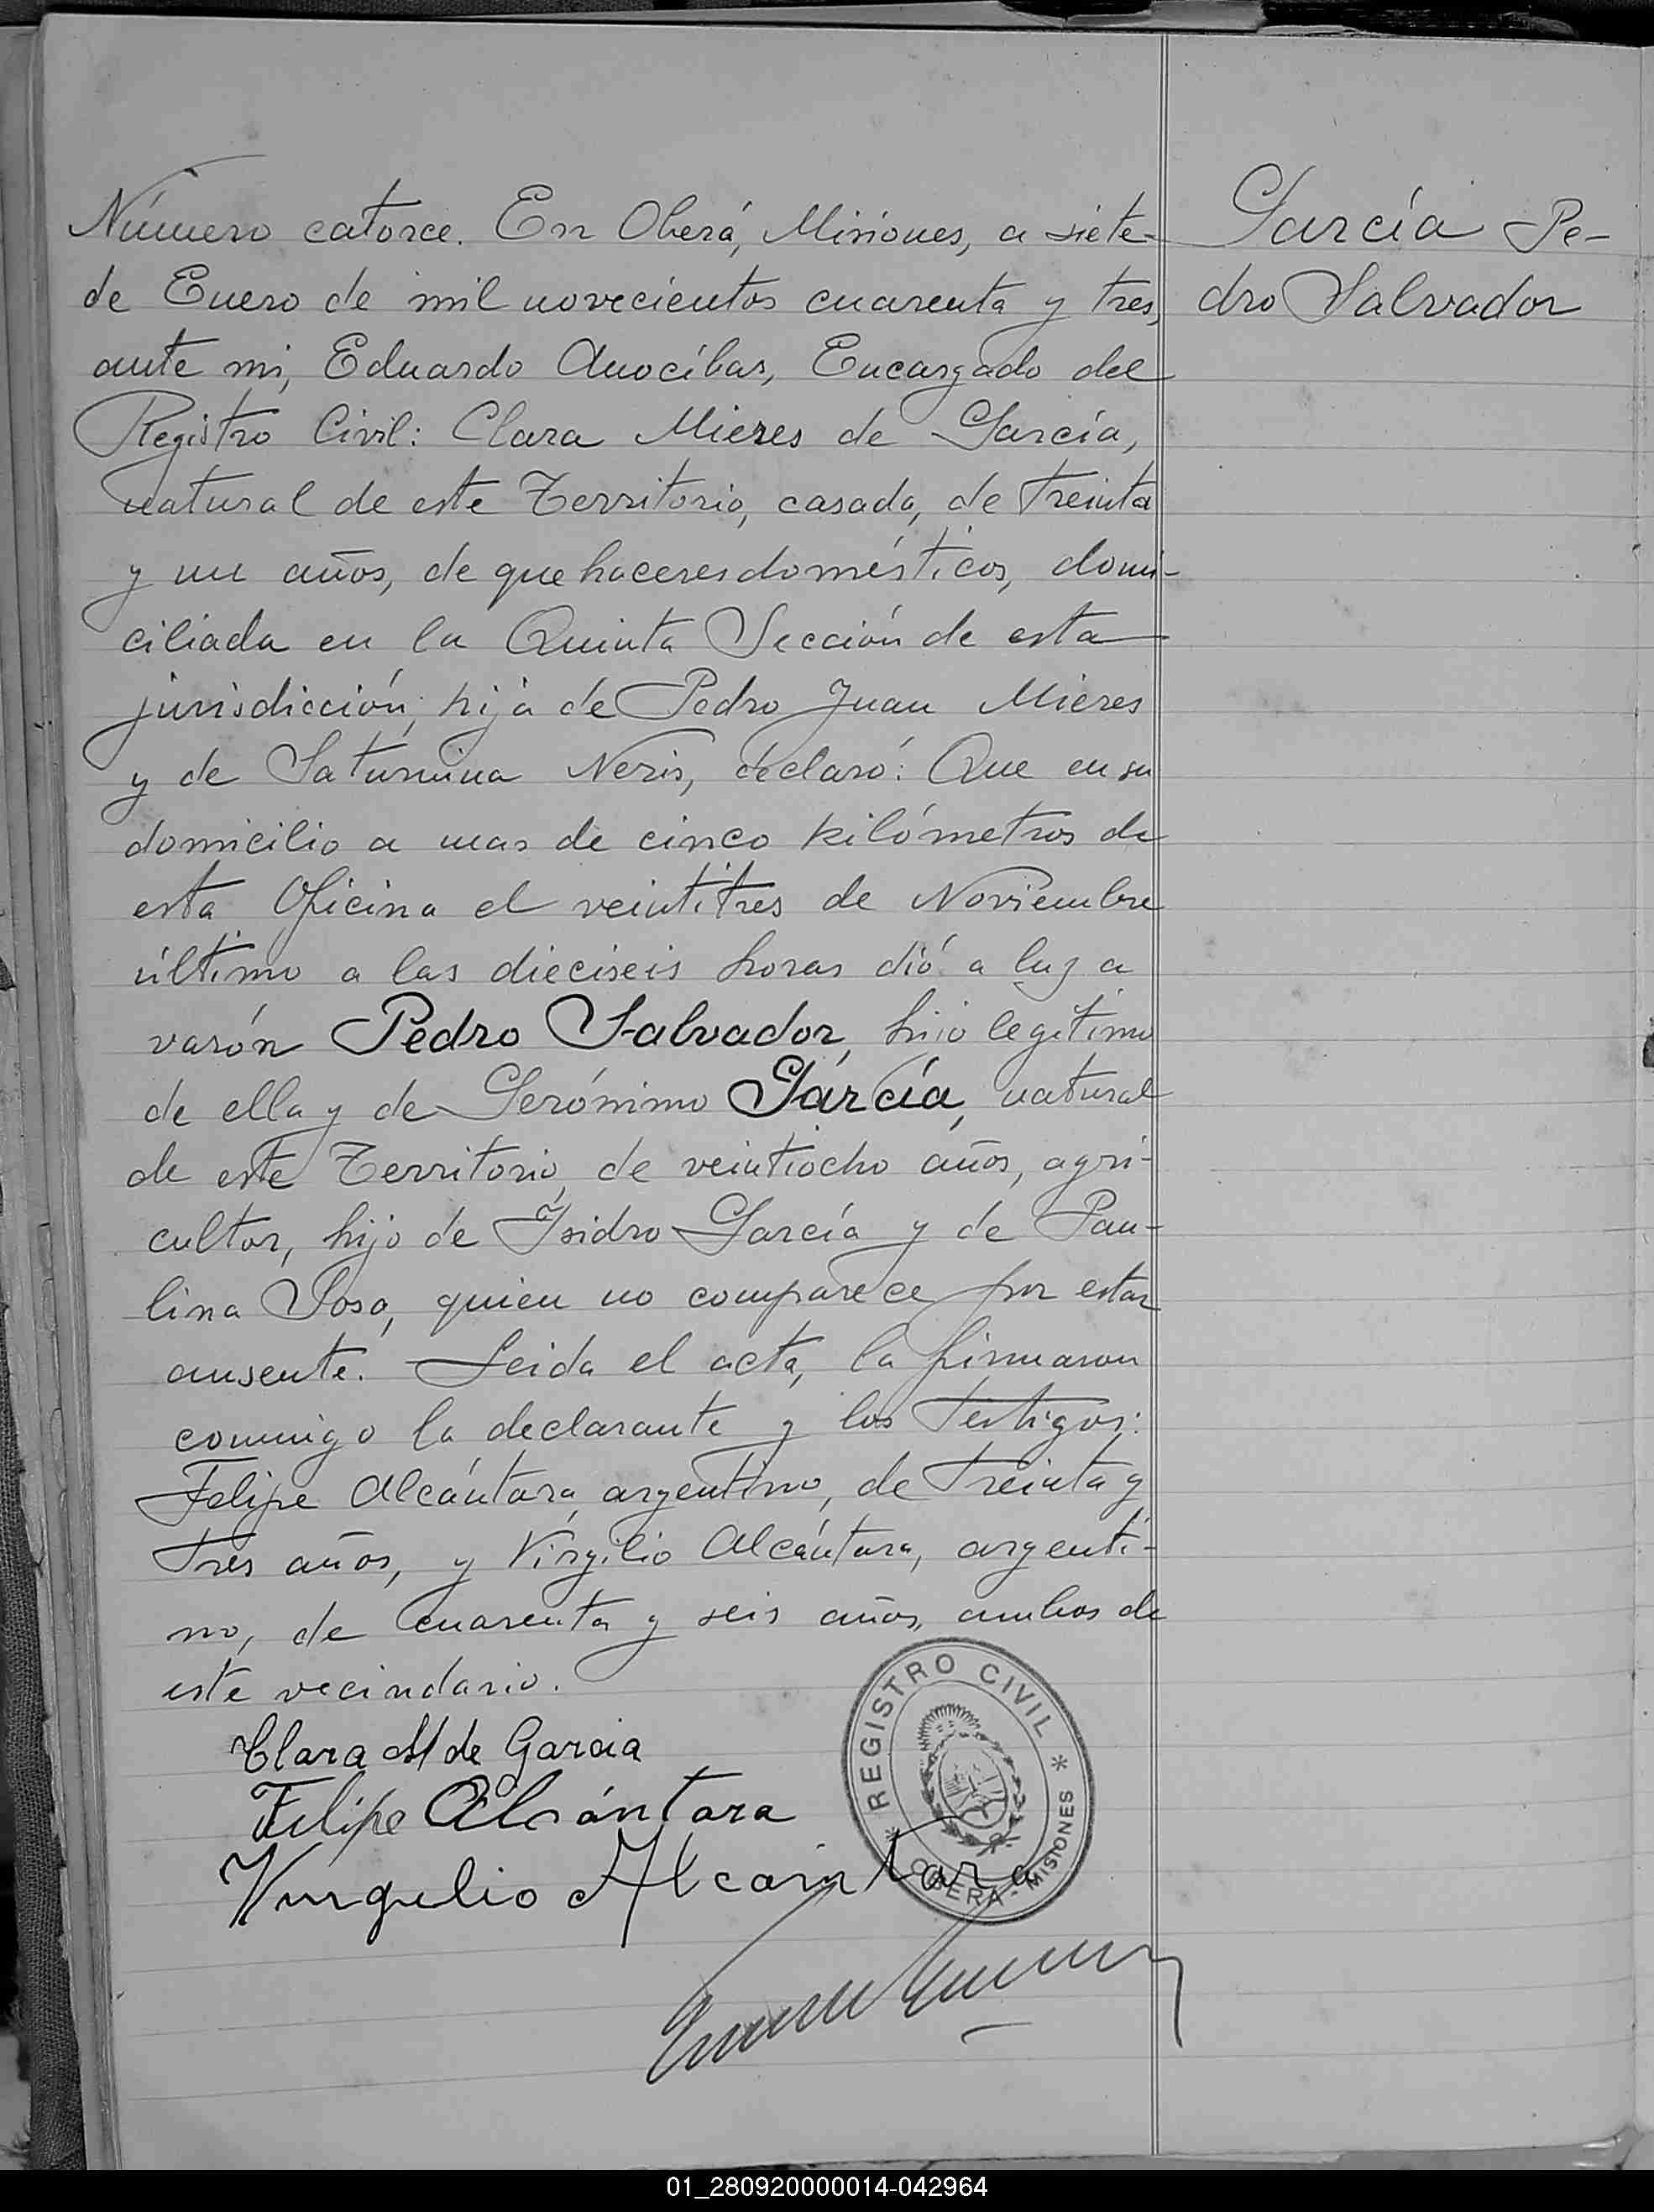 Número catorce. En Oberá, Misiones, a siete
de Enero de mil novecientos cuarenta y tres,
ante mi, Eduardo Anocíbar, Encargado del
Registro Civil: Clara Mieres de García,
natural de este Territorio, casada, de treinta
y un años, de quehaceres domésticos, domi-
ciliada en la Quinta Sección de esta
jurisdicción, hija de Pedro Juan Mieres
y de Saturnina Neris, declaró: Que en su
domicilio a mas de cinco kilómetros de
esta Oficina el veintitres de Noviembre
último a las dieciseis horas dió a luz a
varón Pedro Salvador, hijo legítimo
de ella y de Gerónimo García, natural
de este Territorio, de veintiocho años, agri-
cultor, hijo de Isidro García y de Pau-
lina Sosa, quien no comparece por estar
ausente. Leida el acta, la firmaron
conmigo la declarante y los testigos:
Felipe Alcántara, argentino, de treinta y
tres años, y Virgilio Alcántara, argenti-
no, de cuarenta y seis años, ambos de
este vecindario.
Clara M de Garcia
Felipe Alcántara
Virgilio Alcantara
García Pe-
dro Salvador
REGISTRO CIVIL
OBERA - MISIONES
01_280920000014-042964